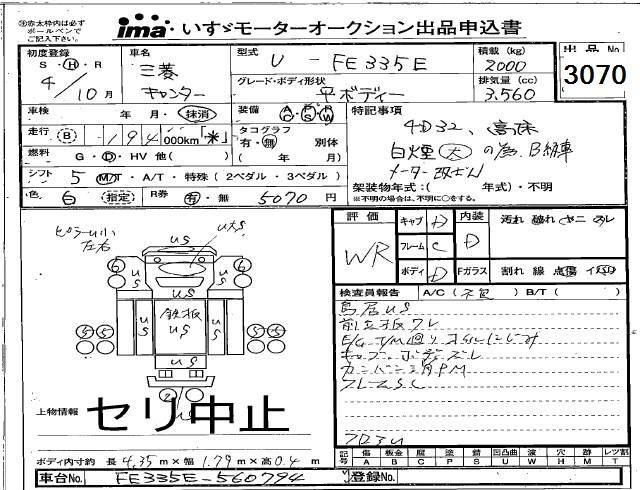 ※赤太枠内は必ず
ボールペンで
ご記入下さい。
ima いすゞモーターオークション出品申込書
初度登録
S・H・R
4/10月
車名
三菱
キャンター
型式
U - FE335E
グレード・ボディ形状
平ボディー
積載(kg)
2000
排気量(cc)
3.560
出品No
3070
車検 年 月・抹消
装備
A/C P/S P/W
特記事項
4D32、高床
白煙(大)の為、B級車
メーター改ざん
走行 B 194 000km「*」
タコグラフ
有・無 別体
( 年 月)
燃料 G・D・HV他( )
シフト 5 M/T・A/T・特殊(2ペダル・3ペダル)
架装物年式:( 年式)・不明
※不明の場合は、不明に○をする。
色 白 (指定) R券 有・無 5070円
評価
WR
キャブ D
フレーム C
ボディ D
内装 D
汚れ 破れ ヤニ スレ
Fガラス 割れ 線 点傷
検査員報告 A/C( ) B/T( )
鳥居US
前立板スレ
E/G T/M廻りオイルにじみ
キャブ、ボディズレ
フレームSC
フロアU
ピラー小
左右
US
U大S
US
US
US
US
鉄板
US
US
上物情報
セリ中止
ボディ内寸約 長 4.35m×幅 1.79m×高 0.4m
記号 傷A 板金B 腐C 塗P 錆S 凹凸曲U 波W 穴H 無M レンズ割T
車台No. FE335E-560794
登録No.